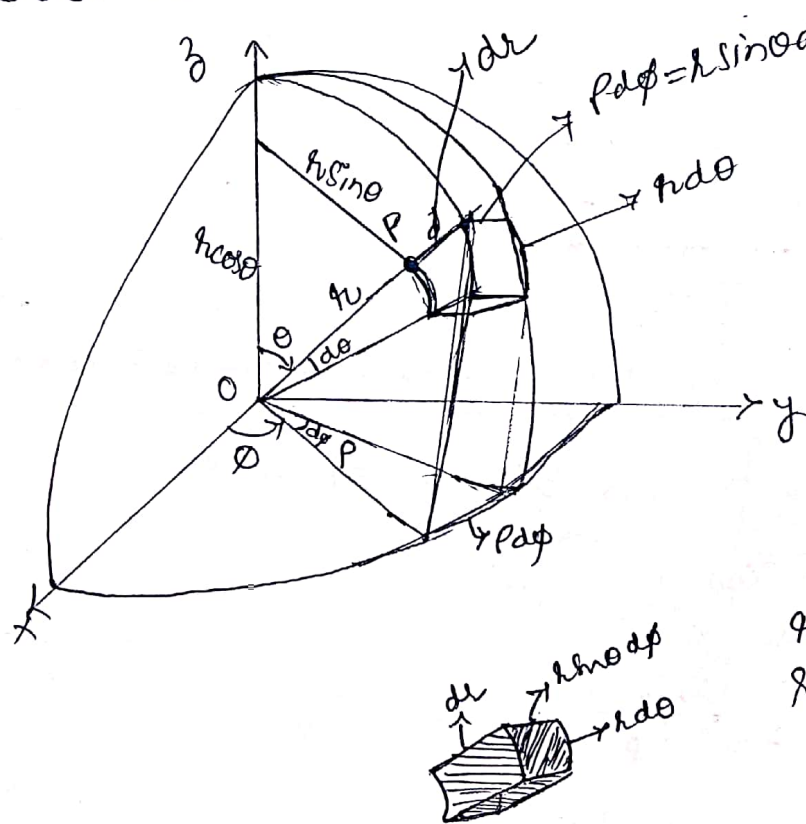 z
dr
ρdφ=rsinθd
rdθ
rsinθ
P
rcosθ
r
θ
dθ
O
y
φ
dφ
ρ
ρdφ
x
dr
rsinθdφ
rdθ